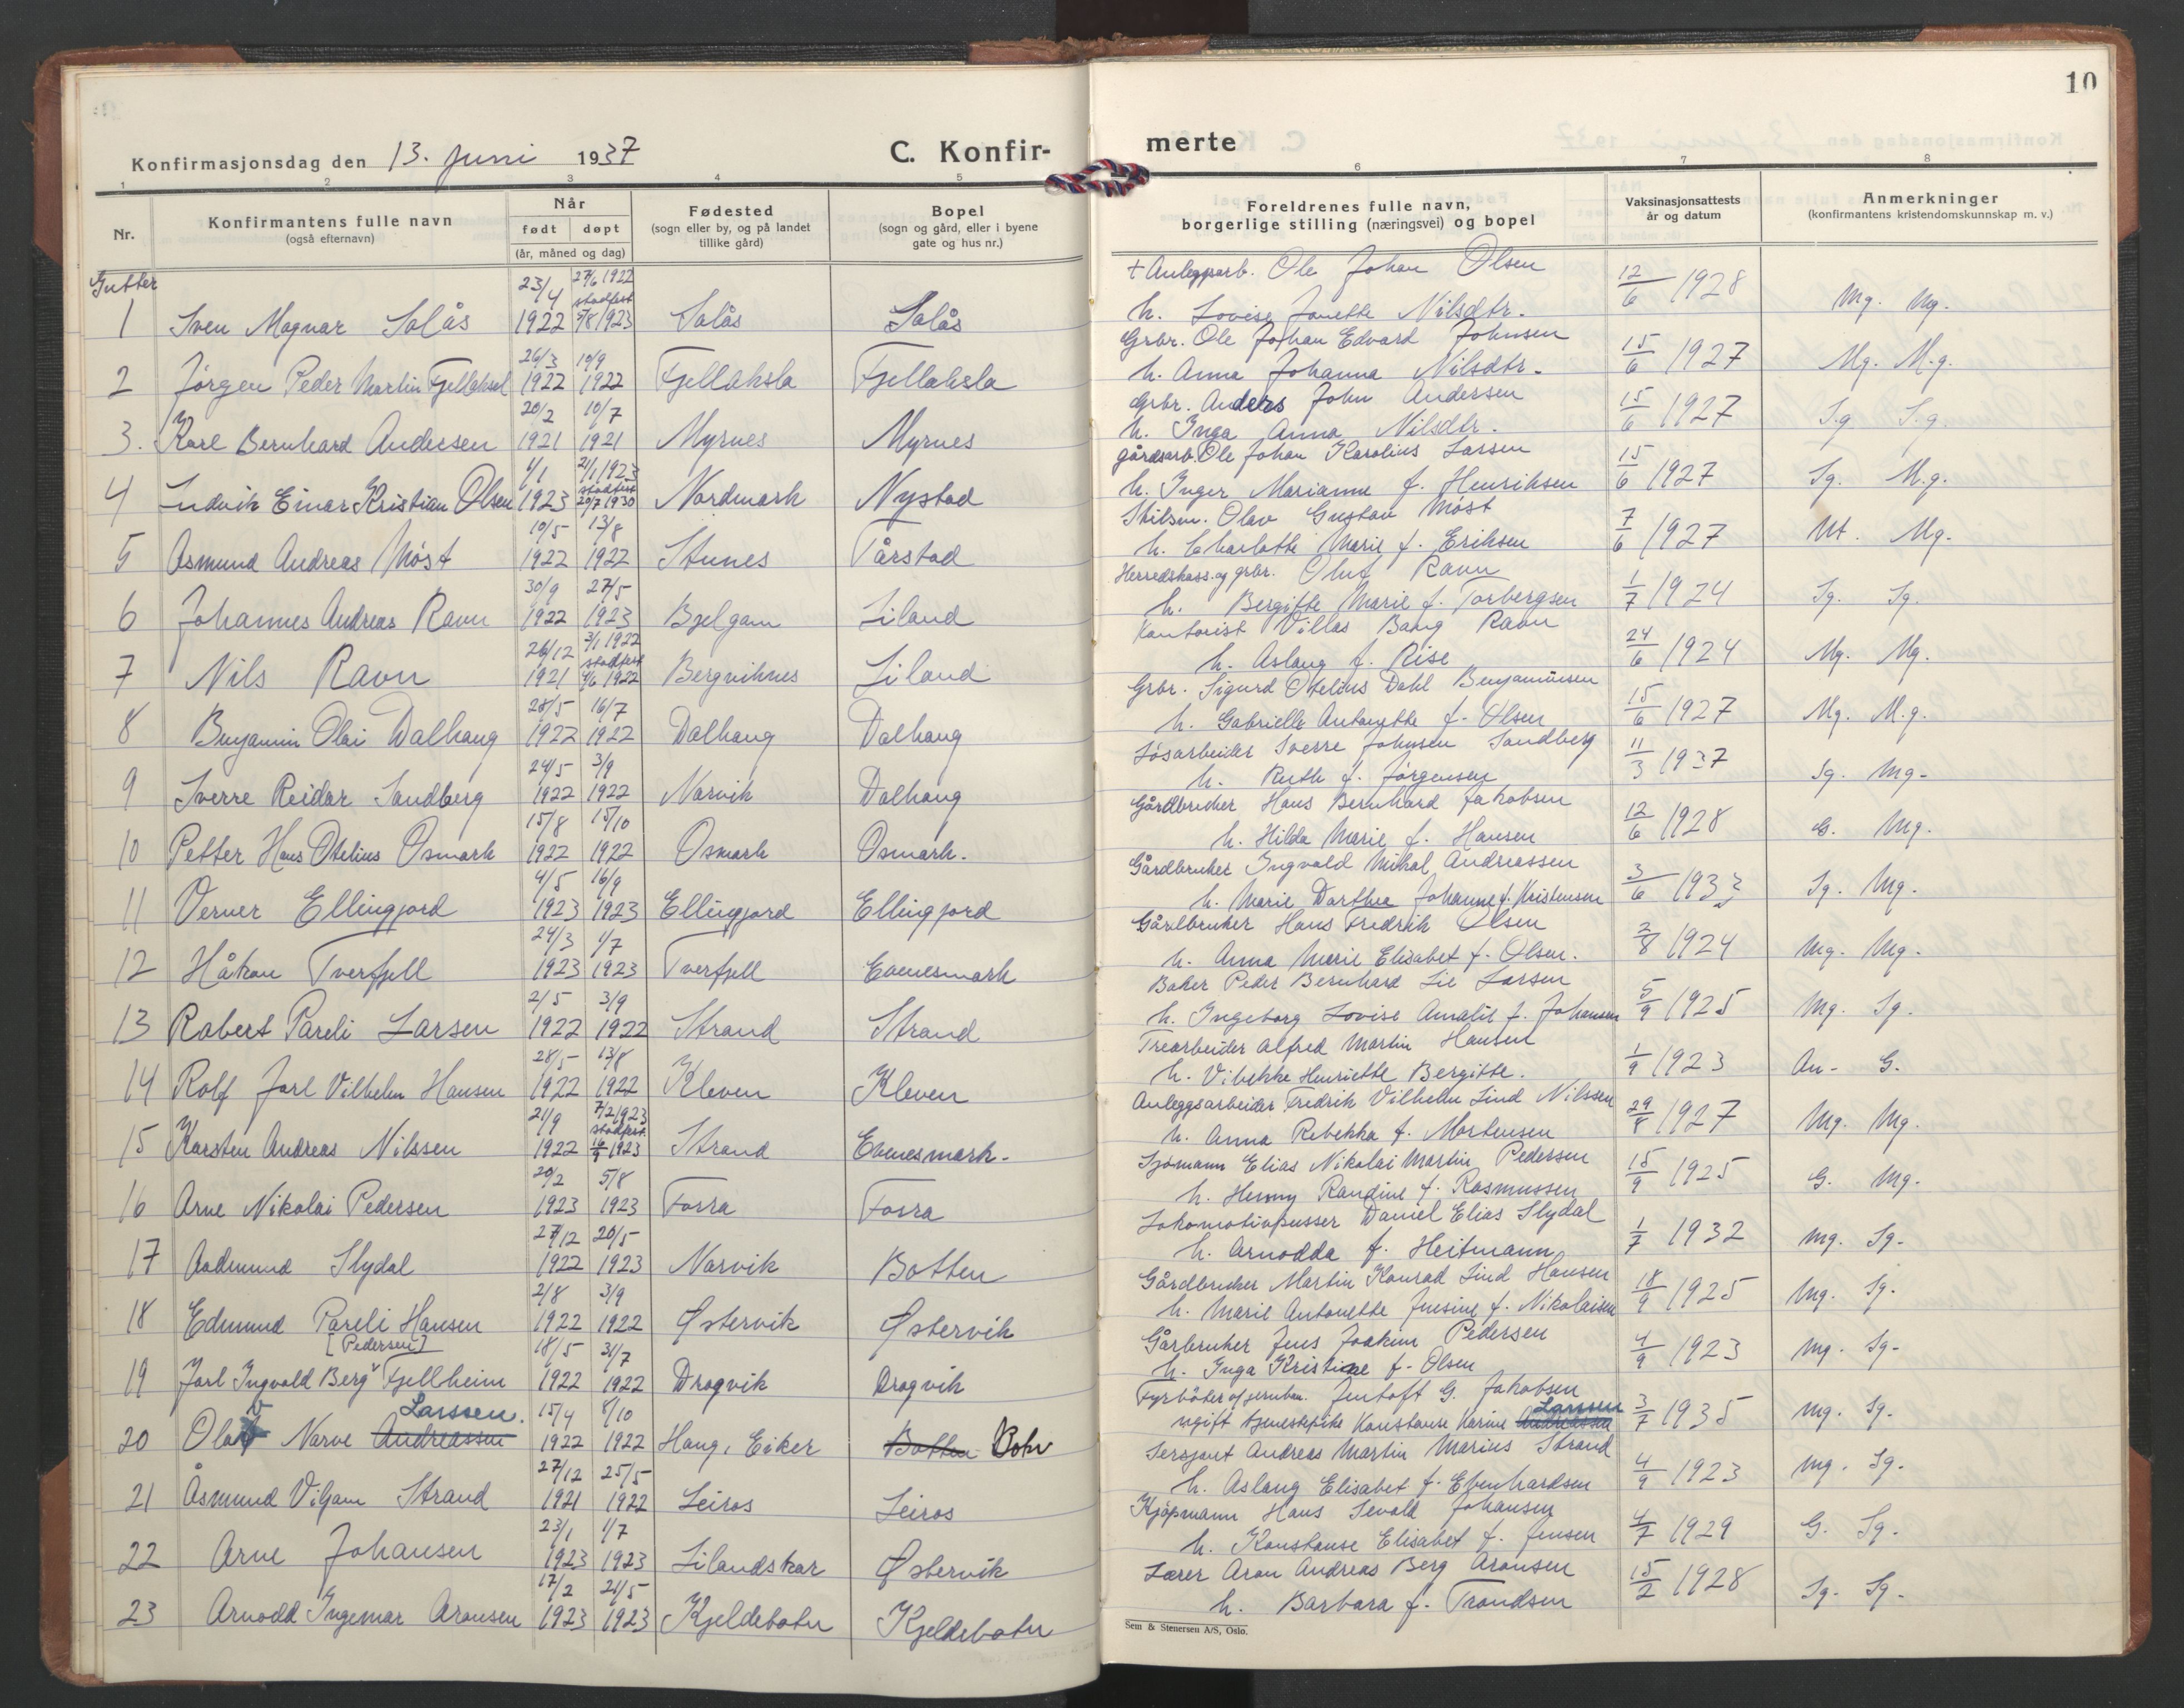 10
Konfirmasjonsdag den 13. juni 1937 C. Konfir- merte
1 2 3 4 5 6 7 8
Nr. Konfirmantens fulle navn (også efternavn) Når født døpt (år, måned og dag) Fødested (sogn eller by, og på landet tillike gård) Bopel (sogn og gård, eller i byene gate og hus nr.) Foreldrenes fulle navn, borgerlige stilling (næringsvei) og bopel Vaksinasjonsattests år og datum Anmerkninger (konfirmantens kristendomskunnskap m. v.)
Gutter
1 Sven Magnar Solås 23/4 1922 27/6 1922 stadfest 5/8 1923 Solås Solås + Anleggsarb. Ole Johan Olsen h. Lovise Janette Nilsdtr. 12/6 1928 Mg. Mg.
2 Jörgen Peder Martin Fjellaksel 26/3 1922 10/9 1922 Fjellaksla Fjellaksla Grbr. Ole Johan Edvard Johnsen h. Anna Johanna Nilsdtr. 15/6 1927 Mg. M.g.
3. Karl Bernhard Andersen 20/2 1921 10/7 1921 Myrnes Myrnes Grbr. Anders John Andersen h. Inga Anna Nilsdtr. 15/6 1927 S.g S.g.
4 Ludvik Einar Kristian Olsen 1/1 1923 21/1 1923 stadfest 20/7 1930 Nordmark Nystad gårdsarb. Ole Johan Karolius Larsen h. Inger Marianne f. Henriksen 15/6 1927 Sg. M.g.
5 Asmund Andreas Møst 10/5 1922 13/8 1922 Stunes Tårstad Stilsen. Olav Gustav Møst h. Charlotte Marie f. Eriksen 7/6 1927 Mt. Mg.
6 Johannes Andreas Ravn 30/9 1922 27/5 1923 Bjelgam Liland Herredskass. og grbr. Oluf Ravn h. Bergitte Marie f. Torbergsen 1/7 1924 Sg. Sg.
7 Nils Ravn 26/12 1921 3/1 1922 stadfest 4/6 1922 Bergviknes Liland Kontorist Villas Bang Ravn h. Aslaug f. Rise 24/6 1924 Mg. Mg.
8 Benjamin Olai Dalhaug 28/5 1922 16/7 1922 Dalhaug Dalhaug Grbr. Sigurd Otelius Dahl Benjaminsen h. Gabrielle Antonette f. Olsen 15/6 1927 Mg. M.g.
9 Sverre Reidar Sandberg 24/5 1922 3/9 1922 Narvik Dalhaug Løsarbeider Sverre Johnsen Sandberg h. Ruth f. Jörgensen 11/3 1937 Sg. Mg.
10 Petter Hans Otelius Osmark 15/8 1922 15/10 1922 Osmark Osmark. Gårdbruker Hans Bernhard Jakobsen h. Hilda Marie f. Hansen 12/6 1928 G. Mg.
11 Verner Ellingjord 4/5 1923 16/9 1923 Ellingjord Ellingjord Gårdbruker Ingvald Mikal Andreassen h. Marie Dorthea Johanne f. Kristensen 3/6 1933 Sg. Mg.
12 Håkon Tverfjell 24/3 1923 1/7 1923 Tverfjell Evenesmark Gårdbruker Hans Fredrik Olsen h. Anna Marie Elisabet f. Olsen. 2/8 1924 Mg. Mg.
13 Robert Pareli Larsen 2/5 1922 3/9 1922 Strand Strand Baker Peder Bernhard Lie Larsen h. Ingeborg Lovise Amalie f. Johansen 5/9 1925 Mg. Sg.
14 Rolf Jarl Vilhelm Hansen 28/5 1922 13/8 1922 Kleven Kleven Trearbeider Alfred Martin Hansen h. Vibekke Henriette Bergitte. 1/9 1923 An- G.
15 Karsten Andreas Nilssen 21/9 1922 7/2 1923 stadfest 1923 Strand Evenesmark. Anleggsarbeider Fredrik Vilhelm Lind Nilssen h. Anna Rebekka f. Mortensen 29/8 1927 Mg. Mg.
16 Arne Nikolai Pedersen 20/2 1923 5/8 1923 Forra Forra Sjömann Elias Nikolai Martin Pedersen h. Henny Randine f. Rasmussen 15/9 1925 G. Mg.
17 Aadmund Slydal 27/12 1922 20/5 1923 Narvik Botten Lokomotivpusser Daniel Elias Slydal h. Arnodda f. Heitmann 1/7 1932 Mg. Sg.
18 Edmund Pareli Hansen 2/8 1922 3/9 1922 Østervik Østervik Gårdbruker Martin Konrad Lind Hansen h. Marie Antonette Jensine f. Nikolaisen 18/9 1925 Mg. Sg.
19 Jarl Ingvald Berg [Pedersen] Fjellheim 18/5 1922 31/7 1922 Dragvik Dragvik Gårbruker Jens Joakim Pedersen h. Inga Kristine f. Olsen 4/9 1923 Mg. Sg.
20 Olav Narve Andreassen Larssen. 15/4 1922 8/10 1922 Haug, Eiker Botten Botn Fyrböter v/jernban. Jentoft G. Jakobsen ugift tjenestepike Konstanse Karine Andreassen Larssen 3/7 1935 Mg. Sg.
21 Åsmund Viljam Strand 27/12 1921 25/5 1922 Leiros Leiros Sersjant Andreas Martin Marius Strand h. Aslaug Elisabet f. Ebenhardsen 4/9 1923 Mg. Sg.
22 Arne Johansen 23/1 1923 1/7 1923 Lilandskar Østervik Kjøpmann Hans Sevald Johansen h. Konstanse Elisabet f. Jensen 4/7 1929 G. Sg.
23 Arnodd Ingemar Aronsen 17/2 1923 21/5 1923 Kjeldebotn Kjeldebotn Lærer Aron Andreas Berg Aronsen h. Barbara f. Trondsen 15/2 1928 Sg. Sg.
Sem & Stenersen A/S, Oslo.